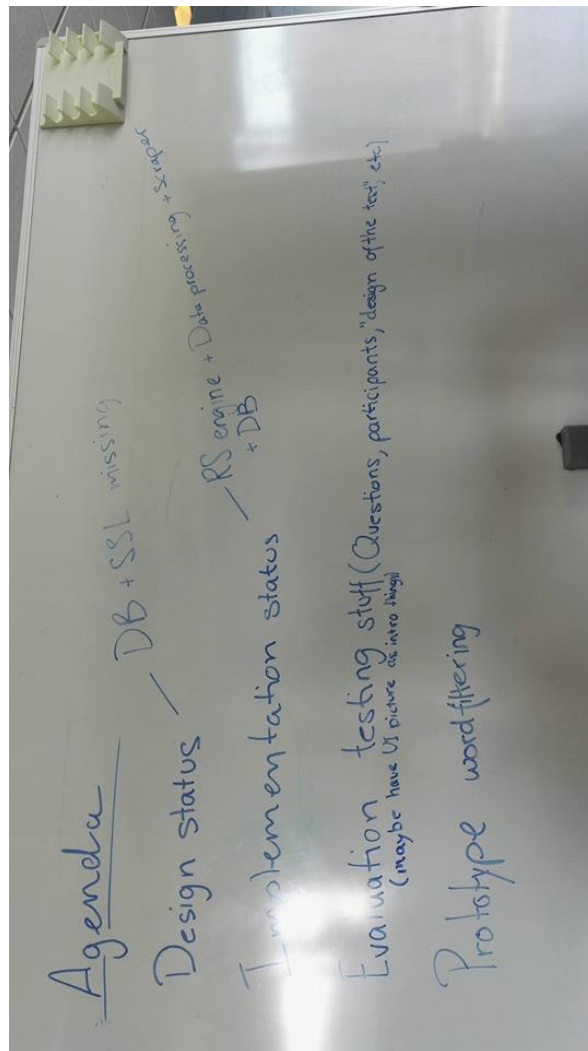 Agenda
Design status — DB + SSL missing
Implementation status — RS engine + Data processing + scraper
+ DB
Evaluation testing stuff (Questions, participants, "design of the test", etc.)
(maybe have UI picture as intro things)
Prototype wordfiltering